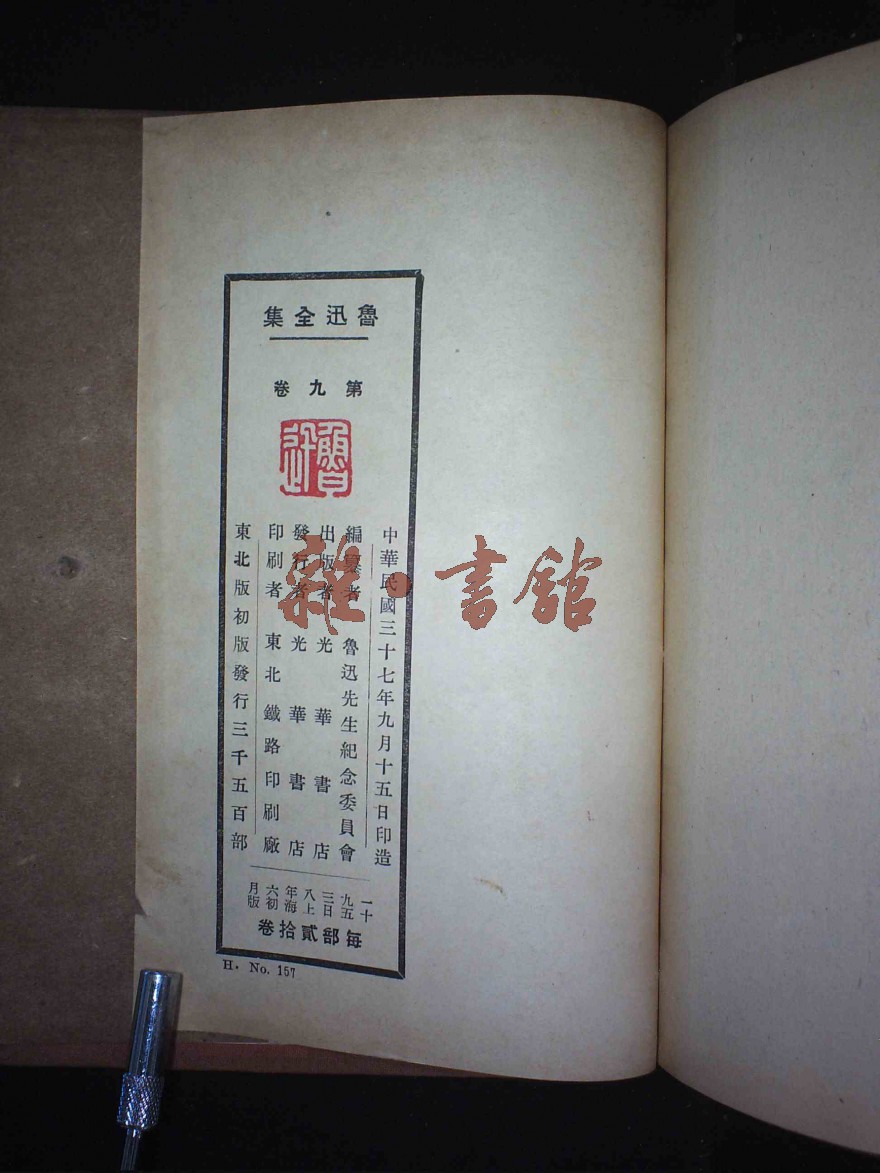 魯迅全集
第九卷
魯迅
中華民國三十七年九月十五日印造
編纂者 魯迅先生紀念委員會
出版者 光華書店
發行者 光華書店
印刷者 東北鐵路印刷廠
東北版初版發行三千五百部
一九三八年六月
十五日上海初版
每部貳拾卷
H. No. 157
雜·書館